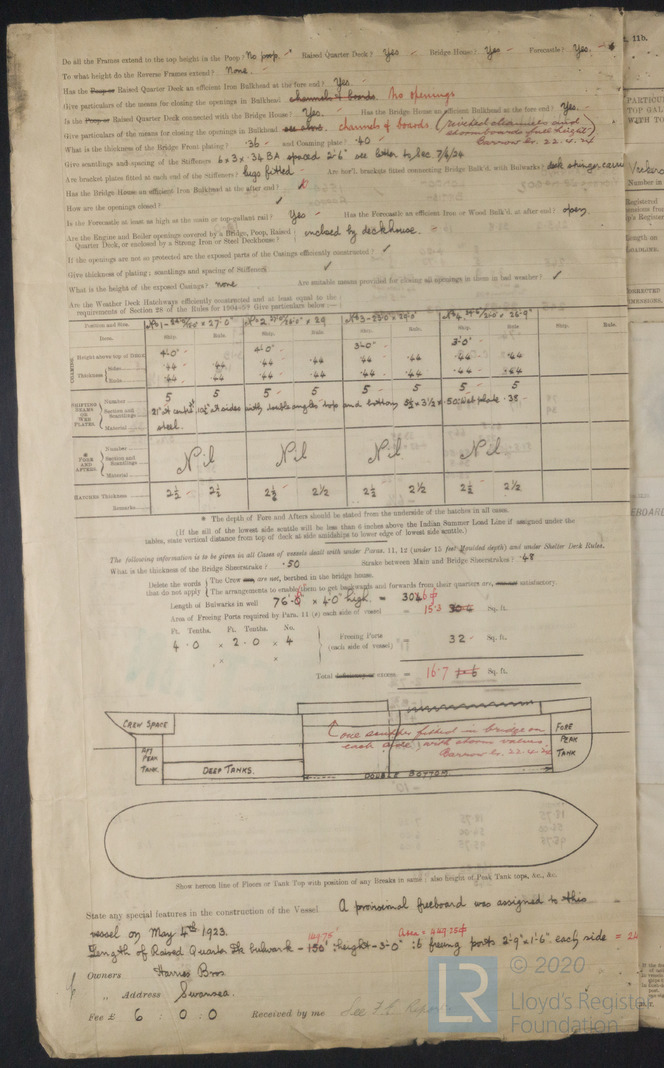 Do all the Frames extend to the top height in the Poop? No poop. Raised Quarter Deck? Yes Bridge House? Yes Forecastle? Yes.
To what height do the Reverse Frames extend? None.
Has the Poop or Raised Quarter Deck an efficient Iron Bulkhead at the fore end? Yes.
Give particulars of the means for closing the openings in Bulkhead channels & boards. No openings
Is the Poop or Raised Quarter Deck connected with the Bridge House? Yes. Has the Bridge House an efficient Bulkhead at the fore end? Yes.
Give particulars of the means for closing the openings in Bulkhead see above. channels & boards (riveted channels and storm boards full height)
What is the thickness of the Bridge Front plating? .36 and Coaming plate? .40 Barrow Ls. 22.4.24
Give scantlings and spacing of the Stiffeners 6 x 3 x .34 BA spaced 2'-6" see letter to Sec. 7/4/24
Are bracket plates fitted at each end of the Stiffeners? lugs fitted Are hor'l. brackets fitted connecting Bridge Bulk'd. with Bulwarks? deck stringer
Has the Bridge House an efficient Iron Bulkhead at the after end?
How are the openings closed?
Is the Forecastle at least as high as the main or top-gallant rail? Yes Has the Forecastle an efficient Iron or Wood Bulk'd. at after end? open.
Are the Engine and Boiler openings covered by a Bridge, Poop, Raised Quarter Deck, or enclosed by a Strong Iron or Steel Deckhouse? enclosed by deckhouse.
If the openings are not so protected are the exposed parts of the Casings efficiently constructed?
Give thickness of plating; scantlings and spacing of Stiffeners
What is the height of the exposed Casings? none Are suitable means provided for closing all openings in them in bad weather?
Are the Weather Deck Hatchways efficiently constructed and at least equal to the requirements of Section 28 of the Rules for 1904-5? Give particulars below:—
Position and Size.
Item. Ship. Rule. Ship. Rule. Ship. Rule. Ship. Rule. Ship. Rule.
COAMING Height above top of Deck 4'-0" 4'-0" 3'-0" 3'-0"
Thickness Sides .44 .44 .44 .44 .44 .44 .44 .44
Ends .44 .44 .44 .44 .44 .44 .44 .44
SHIFTING BEAMS OR WEB PLATES Number 5 5 5 5 5 5 5 5
Section and Scantlings 21" at centre 10½" at sides with double angles top and bottom 3½ x 3½ x .50: web plate .38
Material steel.
* FORE AND AFTERS. Number Section and Scantlings Material Nil Nil Nil Nil
HATCHES Thickness 2½ 2½ 2½ 2½ 2½ 2½ 2½ 2½
Remarks
* The depth of Fore and Afters should be stated from the underside of the hatches in all cases.
(If the sill of the lowest side scuttle will be less than 6 inches above the Indian Summer Load Line if assigned under the
tables, state vertical distance from top of deck at side amidships to lower edge of lowest side scuttle.)
The following information is to be given in all Cases of vessels dealt with under Paras. 11, 12 (under 15 feet Moulded depth) and under Shelter Deck Rules.
What is the thickness of the Bridge Sheerstrake? .50 Strake between Main and Bridge Sheerstrakes? .48
Delete the words that do not apply The Crew are, are not, berthed in the bridge house.
The arrangements to enable them to get backwards and forwards from their quarters are, satisfactory.
Length of Bulwarks in well
Area of Freeing Ports required by Para. 11 (e) each side of vessel = 15.3 Sq. ft.
Ft. Tenths. Ft. Tenths. No.
4 . 0 x 2 . 0 x 4 Freeing Ports (each side of vessel) 32 Sq. ft.
Total deficiency or excess = 16.7 Sq. ft.
CREW SPACE
AFT PEAK TANK.
DEEP TANKS.
DOUBLE BOTTOM
FORE PEAK TANK
one scupper fitted in bridge on
each side, with storm valves
Barrow Ls. 22.4.24
Show hereon line of Floors or Tank Top with position of any Breaks in same; also height of Peak Tank tops, &c., &c.
State any special features in the construction of the Vessel A provisional freeboard was assigned to this
vessel on May 4th 1923.
149.75' Area = 449.25
Length of Raised Quarter Dk bulwark - 150' : height - 3'-0" : 6 freeing ports 2'-9" x 1'-6" each side = 24
Owners Harries Bros
" Address Swansea.
Fee £ 6 : 0 : 0 Received by me See F.E. Report
© 2020
LR Lloyd's Register
Foundation
11b.
PARTICU
TOP GAL
WITH TO
Number in
Registered
LOADLINE.